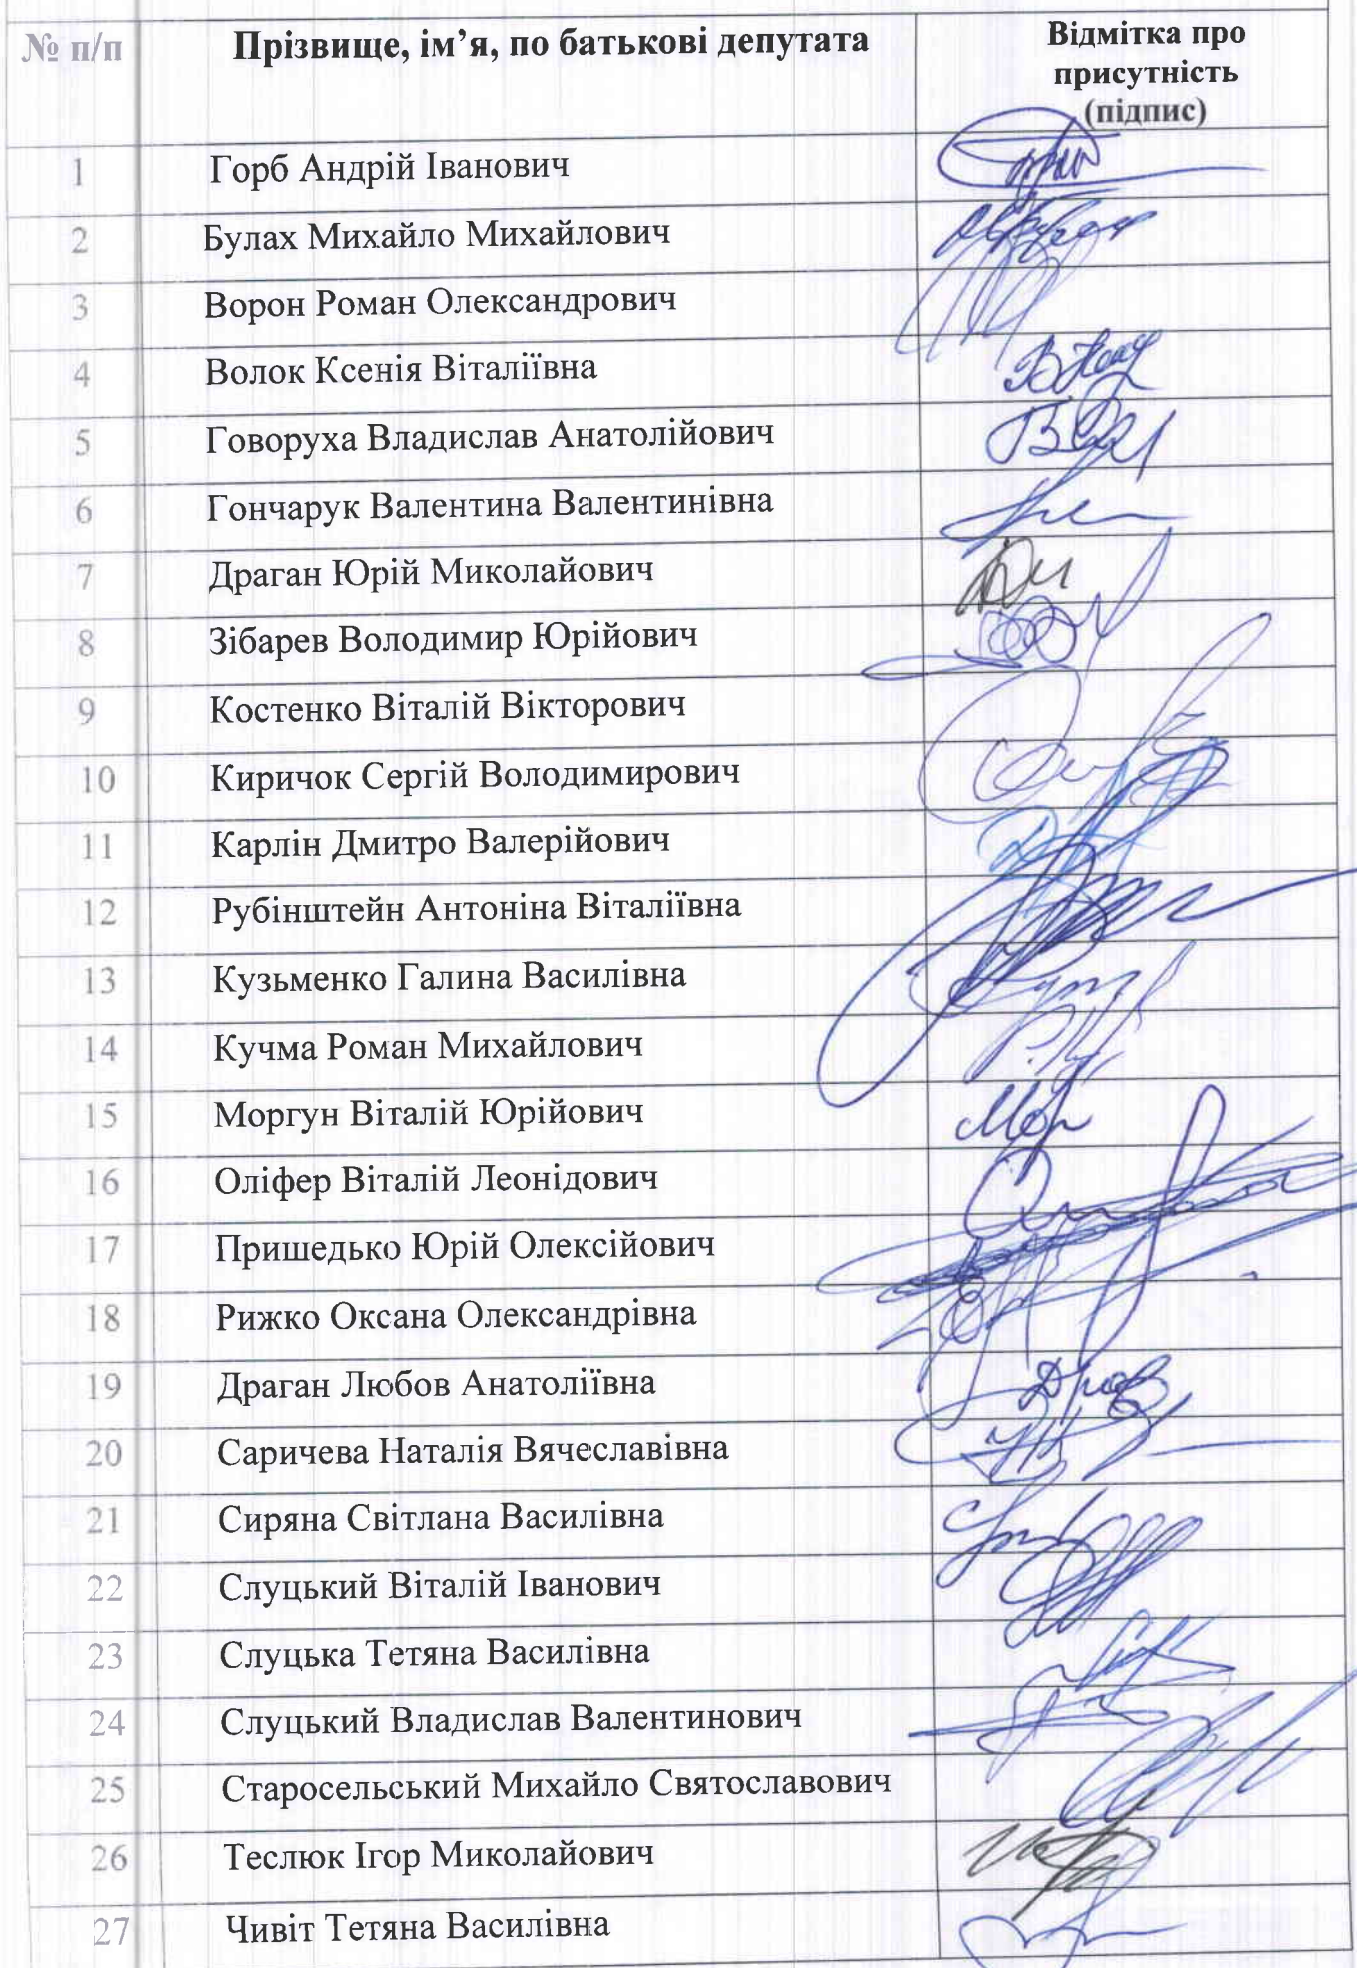 № п/п Прізвище, ім’я, по батькові депутата Відмітка про
присутність
(підпис)
1 Горб Андрій Іванович
2 Булах Михайло Михайлович
3 Ворон Роман Олександрович
4 Волок Ксенія Віталіївна
5 Говоруха Владислав Анатолійович
6 Гончарук Валентина Валентинівна
7 Драган Юрій Миколайович
8 Зібарев Володимир Юрійович
9 Костенко Віталій Вікторович
10 Киричок Сергій Володимирович
11 Карлін Дмитро Валерійович
12 Рубінштейн Антоніна Віталіївна
13 Кузьменко Галина Василівна
14 Кучма Роман Михайлович
15 Моргун Віталій Юрійович
16 Оліфер Віталій Леонідович
17 Пришедько Юрій Олексійович
18 Рижко Оксана Олександрівна
19 Драган Любов Анатоліївна
20 Саричева Наталія Вячеславівна
21 Сиряна Світлана Василівна
22 Слуцький Віталій Іванович
23 Слуцька Тетяна Василівна
24 Слуцький Владислав Валентинович
25 Старосельський Михайло Святославович
26 Теслюк Ігор Миколайович
27 Чивіт Тетяна Василівна